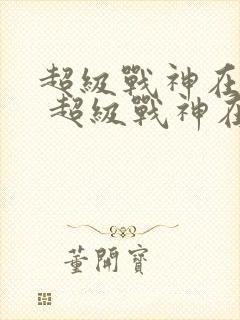 超級戰神在
超級戰神在
董開寶